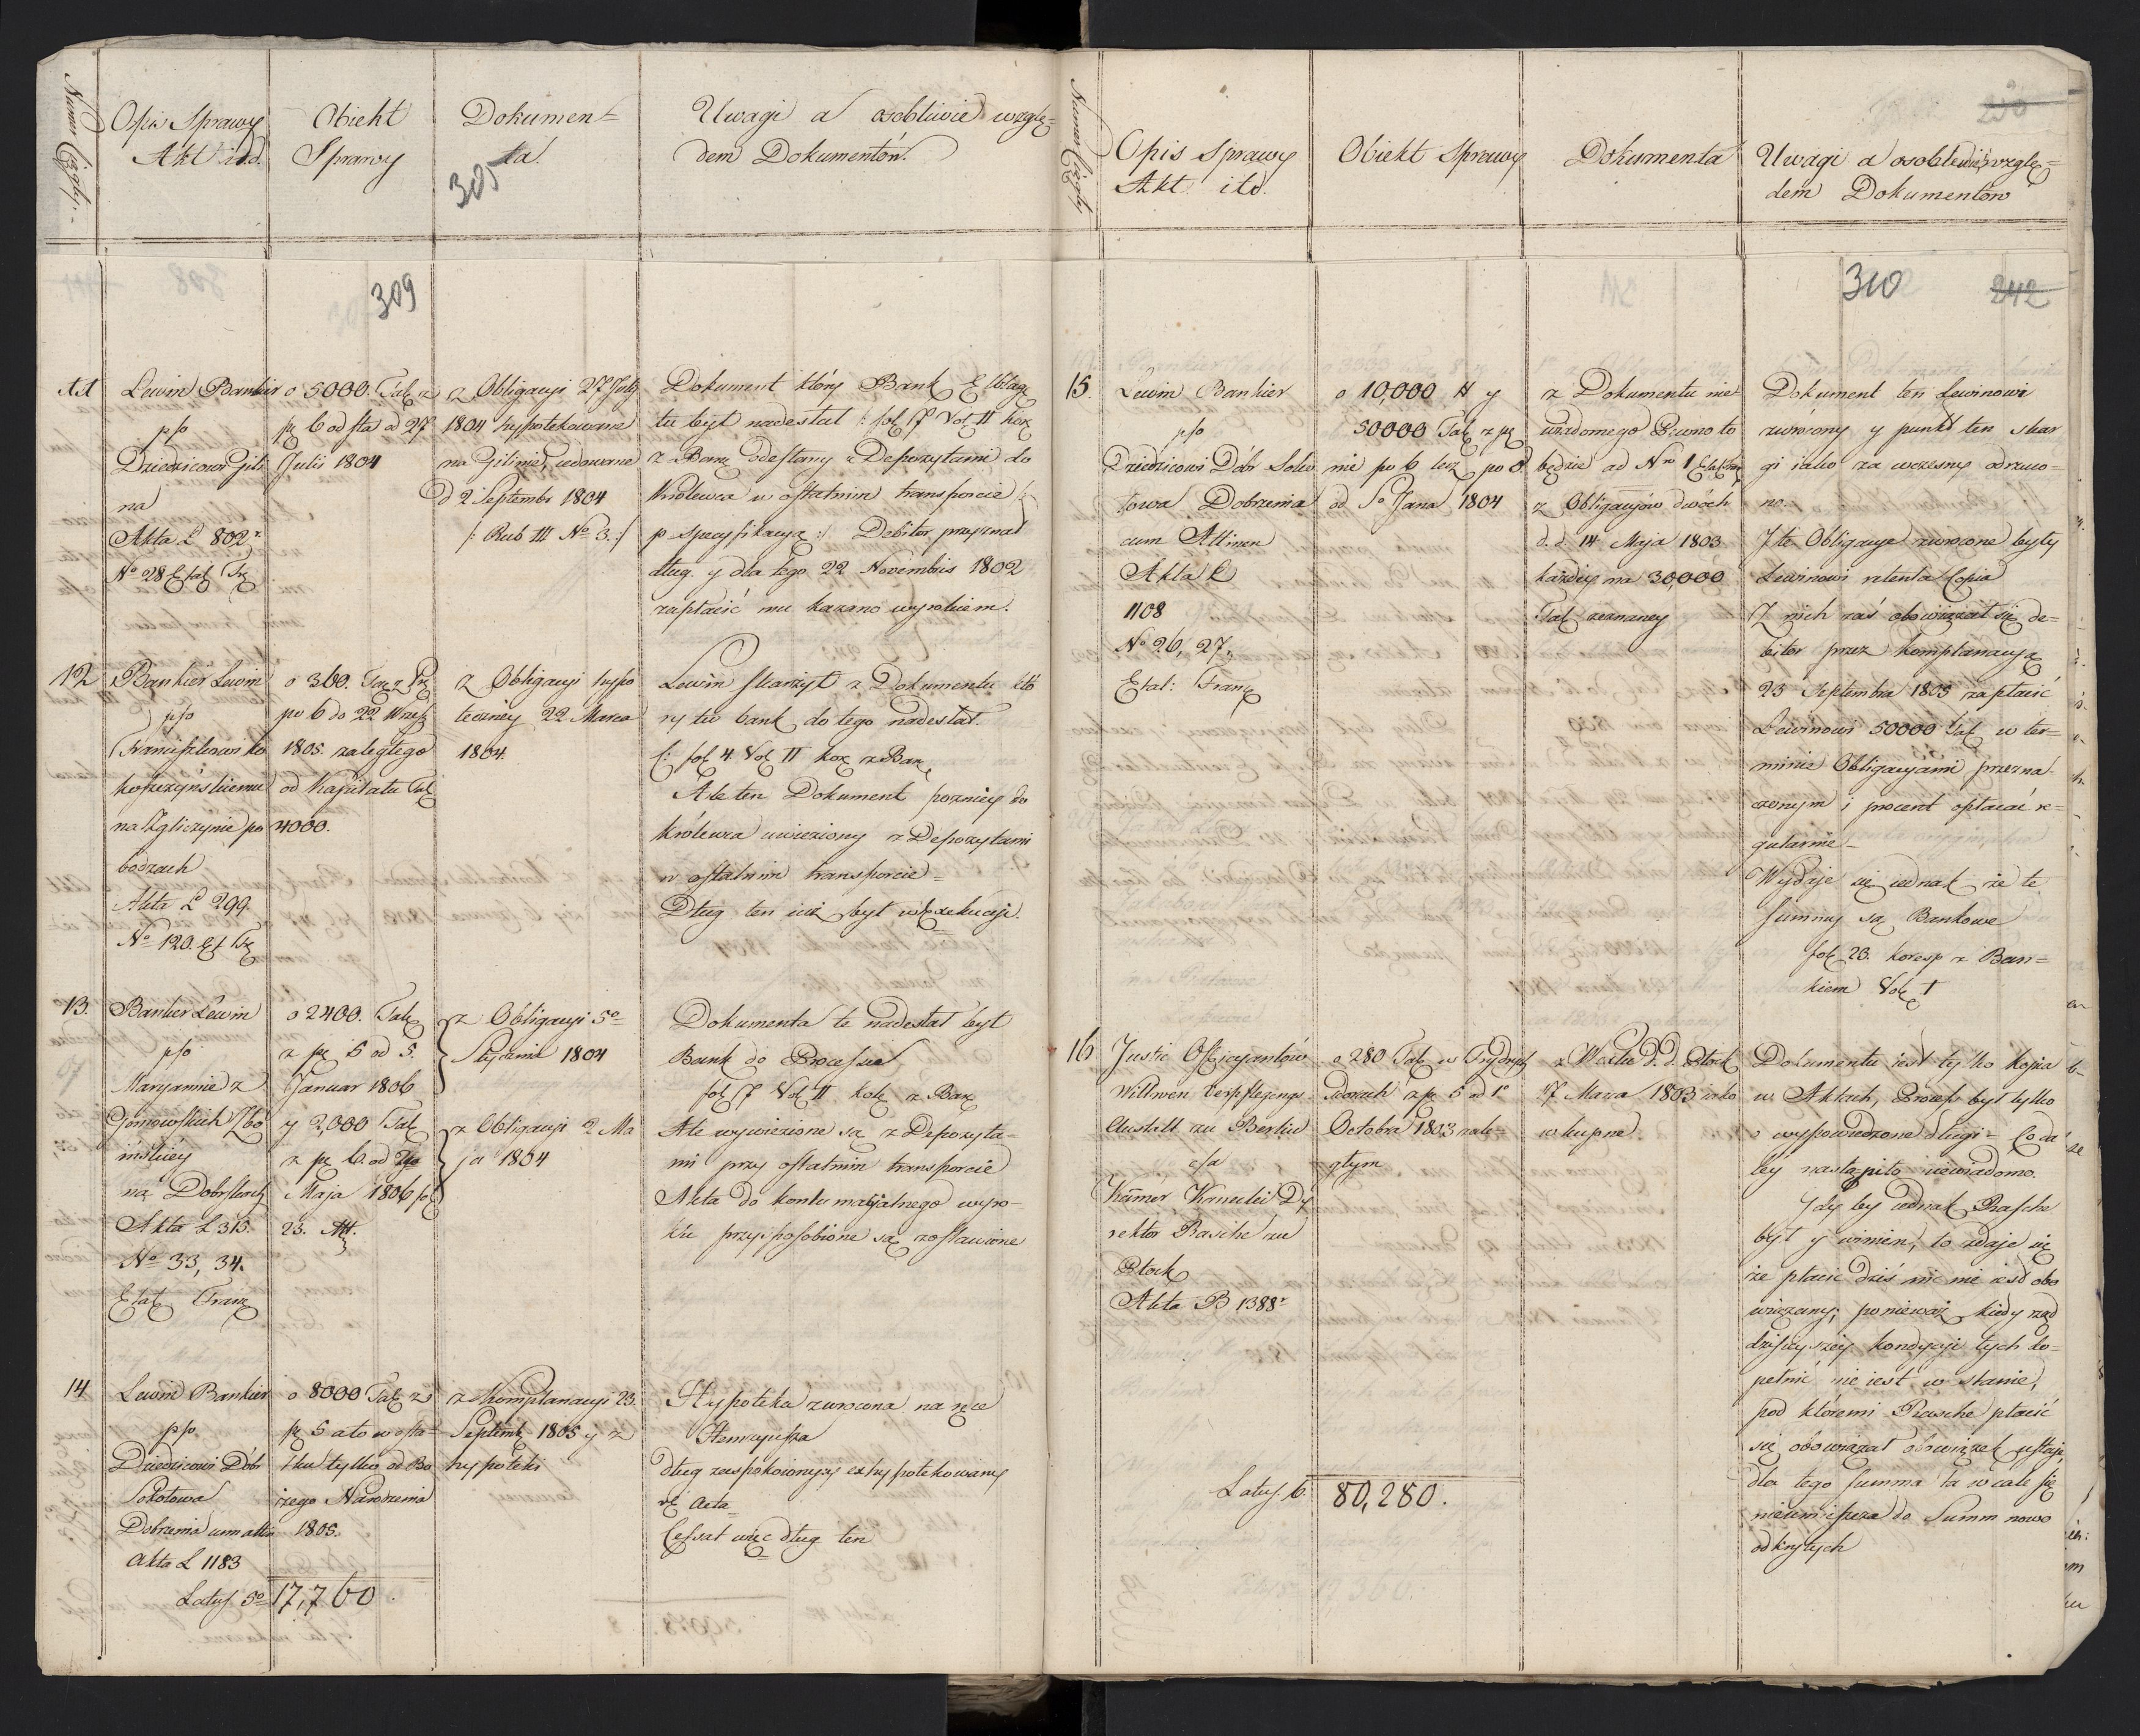 Numer Ciągły
Opis Sprawy
Akt itd.
Obiekt
Sprawy
Dokumen=
ta.
305
Uwagi a osobliwie wzglę=
dem Dokumentów.
309
11
Lewin Bankier
p/o
Dziedzicowi Gili
na
Akta L 802
No 28 Etat Fr
o 5000. Tal z
pc 6 od sta od 27
Julii 1804
z Obligacyi 27 July
1804 hypotekowane
na Gilinie, cedowane
d 2 Septembr 1804
/: Rub III No 3. :/
Dokument który Bank
tu był nadesłał /: fol 17 Vol II Kor
z Bank odesłany z Depozytami do
Królewca w ostatnim transporcie
p specyfikacyą :/ Debitor przyznał
dług. y dla tego 22 Novembris 1802
zapłacić mu kazano wyrokiem.
12
Bankier Lewin
p/o
Franciszkowi Ko
korzyńskiemu
na Zgliczynie po
bodzach
Akta L 299.
No 120. Et Fr
o 360. Tal z Pr
po 6 do 22 Wrześ
1805 zaległego
od Kapitału Tal
4000.
z Obligacyi hypo
teczney 22 Marca
1804.
Lewin skarżył z Dokumentu któ
ry tu bank do tego nadesłał.
/: fol 4 Vol II kor z Ban
Ale ten Dokument pozniey do
Królewca uwieziony z Depozytami
w ostatnim transporcie =
Dług ten iuż był w Exekucyi.
13.
Bankier Lewin
p/o
Maryannie z
Gomowskich Zbo
ińskiéy
na Dobrskach
Akta L 313.
No 33, 34.
Etat Franc
o 2400. Tal
z pc 5 od 5.
Januar 1806
y 2,000 Tal
z pc 6. od 2go
Maja 1806
23.
z Obligacyi 5o
Stycznia 1804
z Obligacyi 2 Ma
ja 1804
Dokumenta te nadesłał był
Bank do Processu
fol 17 Vol II Kor z Ban
Ale wywiezione są z Depozyta=
mi przy ostatnim transporcie
Akta do kontumacyalnego wyro=
ku przysposobione są zostawione
14
Lewin Bankier
p/o
Dziedzicowi Dóbr
Sokołowa
Dobrzenia cum att
Akta L 1183
o 8000 Tal z
pc 5 ato w osta=
tku tylko od Bo
żego Narodzenia
1805.
z Komplanacyi 23.
Septemb 1805 y z
hypoteki
Hypoteka zwrócona na ręce
Henrycysza
dług zaspokoiony y exhypotekowany
vi Acta
Cessat więc dług ten
Latus 5o 17,760
Numer Ciągły
Opis Sprawy
Akt itd.
Obiekt Sprawy
Dokumenta
Uwagi a osobliwie wzglę=
dem Dokumentów
250
310
242
15.
Lewin Bankier
p/o
Dziedzicowi Dóbr Soko
łowa Dobrzenia
cum Attinen
Akta L
1108
No 26, 27,
Etat: Franc
o 10,000 # y
50000 Tal z pc
nie po 6 lecz po 5
od So Jana 1804
z Dokumentu nie
wiadomego Pewno to
będzie ad No 1 Etat
z Obligacyów dwóch
d. d. 14 Maja 1803
każdey na 30,000
Tal zeznaney
Dokument ten Lewinowi
zwrócony y punkt ten skar
gi iako za wczesny odrzuco=
no.
I te Obligacye zwrócone były
Lewinowi retenta Copia
Z nich zaś obowiązał się de=
bitor przez komplanacyą
23 Septembra 1805 zapłacić
Lewinowi 50000 Tal w ter=
minie Obligacyami przezna=
czonym i procent opłacać re=
gularnie -
Wydaje się iednak że te
Summy są Bankowe
fol 23. koresp z Ban=
kiem Vol I
16
Justiz Officyantów
Wittwen Verpflegungs
Anstalt zu Berlin
c/a
Kamer, Kanzelei Dy
rektor Rasche zu
Płock
Akta B 1388
o 280 Tal w Frydrych
dorach z pc 5 od 1o
Octobra 1803 zale=
głym
z Wexlu d. d. Płock
17 Marca 1803 iako
wkupne
Dokumentu iest tylko kopia
w Aktach, Process był tylko
o wypowiedzone długi = Co da
léy nastąpiło niewiadomo.
Gdy by iednak Rasche
był y winien, to zdaje się
że płacić dziś nic nie iest obo
wiązany; ponieważ kiedy rząd
dzisieyszey kondycyi tych do=
pełnić nie iest w stanie,
pod któremi Rasche płacić
się obowiązał obowiązek ustaje,
dla tego summa ta wcale się
nieumieszcza do Summ nowo
odkrytych
Latus 6. 80,280.